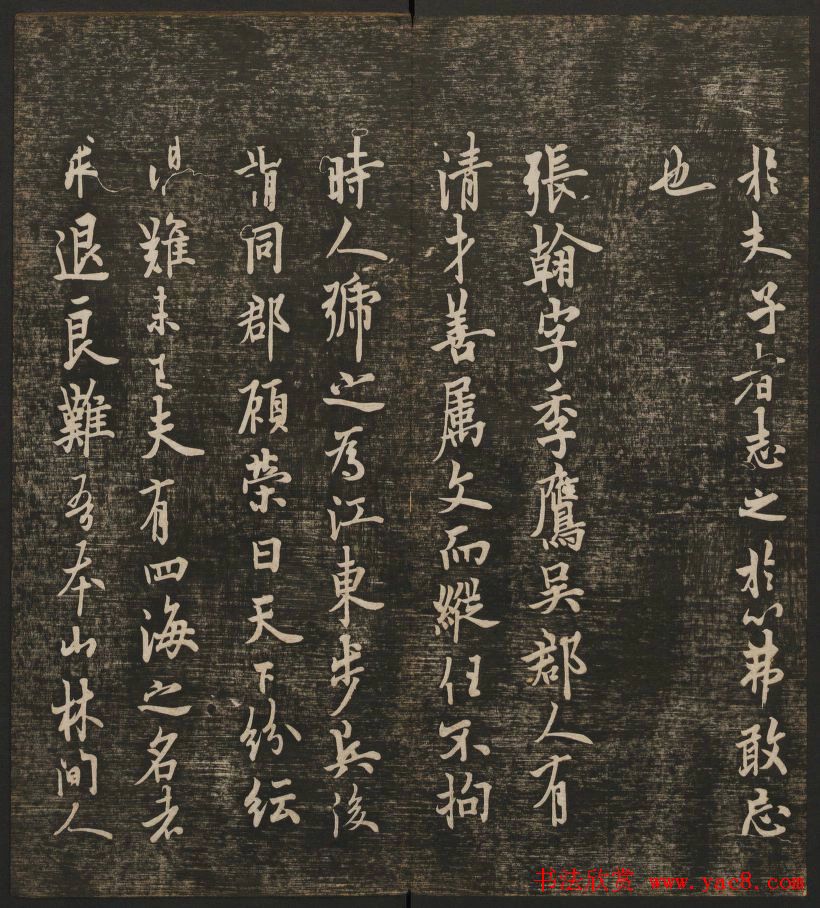 於夫子者志之於心弗敢忘
也
張翰字季鷹吳郡人有
清才善属文而縱任不拘
時人號之為江東步兵後
謂同郡顧榮曰天下紛紜
禍難未已夫有四海之名者
求退良難吾本山林間人
书法欣赏 www.yac8.com